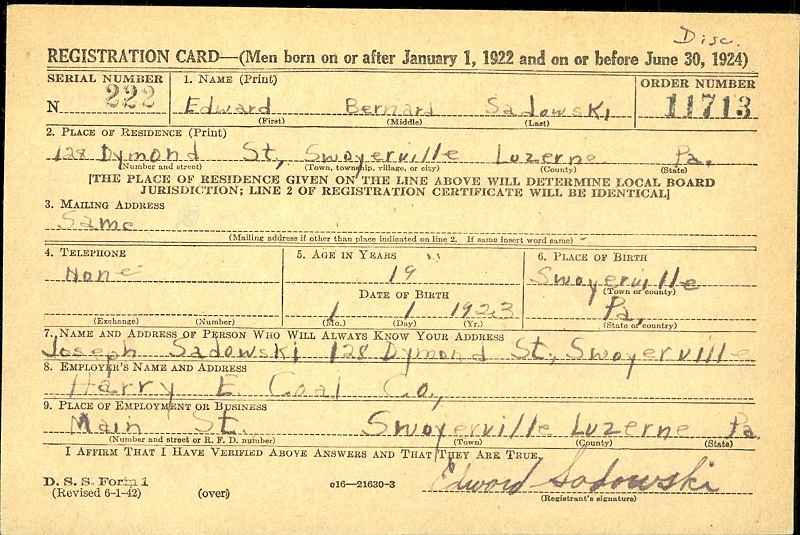 Disc.
REGISTRATION CARD—(Men born on or after January 1, 1922 and on or before June 30, 1924)
SERIAL NUMBER 1. NAME (Print) ORDER NUMBER
N 222 Edward Bernard Sadowski 11713
(First) (Middle) (Last)
2. PLACE OF RESIDENCE (Print)
128 Dymond St, Swoyerville Luzerne Pa.
(Number and street) (Town, township, village, or city) (County) (State)
[THE PLACE OF RESIDENCE GIVEN ON THE LINE ABOVE WILL DETERMINE LOCAL BOARD
JURISDICTION; LINE 2 OF REGISTRATION CERTIFICATE WILL BE IDENTICAL]
3. MAILING ADDRESS
Same
(Mailing address if other than place indicated on line 2. If same insert word same)
4. TELEPHONE 5. AGE IN YEARS 6. PLACE OF BIRTH
None 19 Swoyerville
(Town or county)
DATE OF BIRTH
1 1 1923 Pa,
(Exchange) (Number) (Mo.) (Day) (Yr.) (State or country)
7. NAME AND ADDRESS OF PERSON WHO WILL ALWAYS KNOW YOUR ADDRESS
Joseph Sadowski 128 Dymond St, Swoyerville
8. EMPLOYER'S NAME AND ADDRESS
Harry E. Coal Co.,
9. PLACE OF EMPLOYMENT OR BUSINESS
Main St. Swoyerville Luzerne Pa.
(Number and street or R. F. D. number) (Town) (County) (State)
I AFFIRM THAT I HAVE VERIFIED ABOVE ANSWERS AND THAT THEY ARE TRUE.
D. S. S. Form 1
(Revised 6-1-42) (over) c16—21630-3 Edward Sadowski
(Registrant's signature)